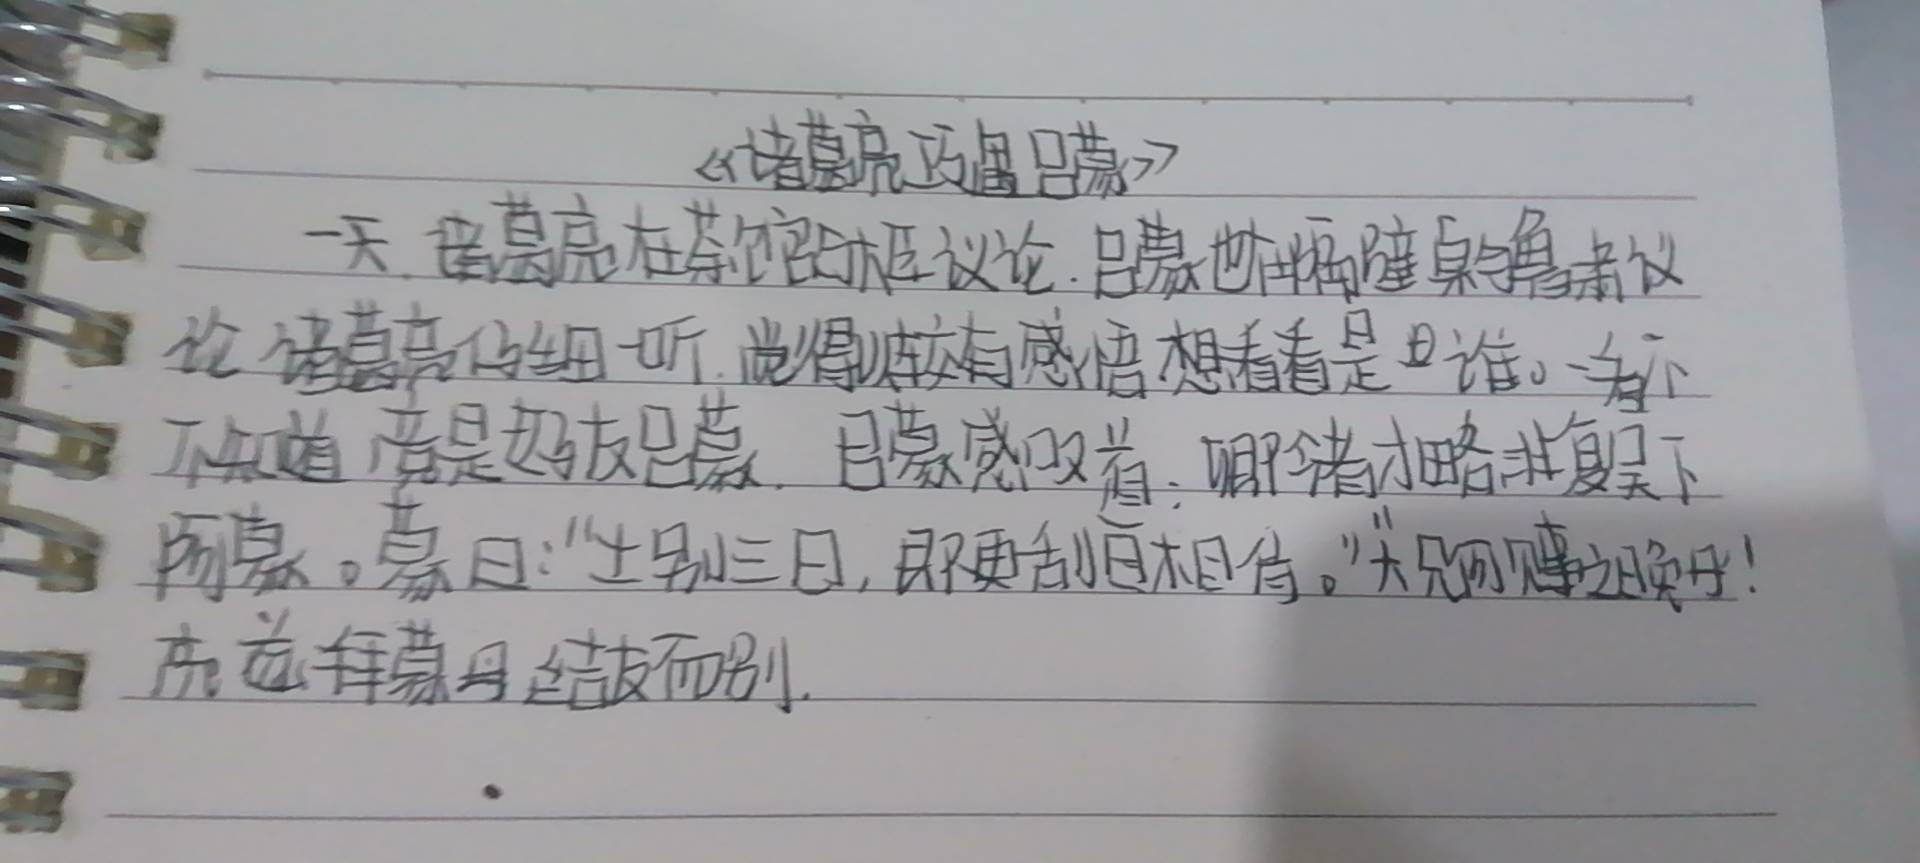 《诸葛亮巧遇吕蒙》
一天.诸葛亮在茶馆与人议论.吕蒙也在隔壁桌与鲁肃议
论 诸葛亮仔细一听.觉得颇有感悟 想看看是谁。一看不
不知道 竟是好友吕蒙. 吕蒙感叹道:卿今者才略非复吴下
阿蒙。蒙曰:“士别三日,即更刮目相待。”“大兄何见事之晚乎!
亮遂拜蒙母 结友而别.